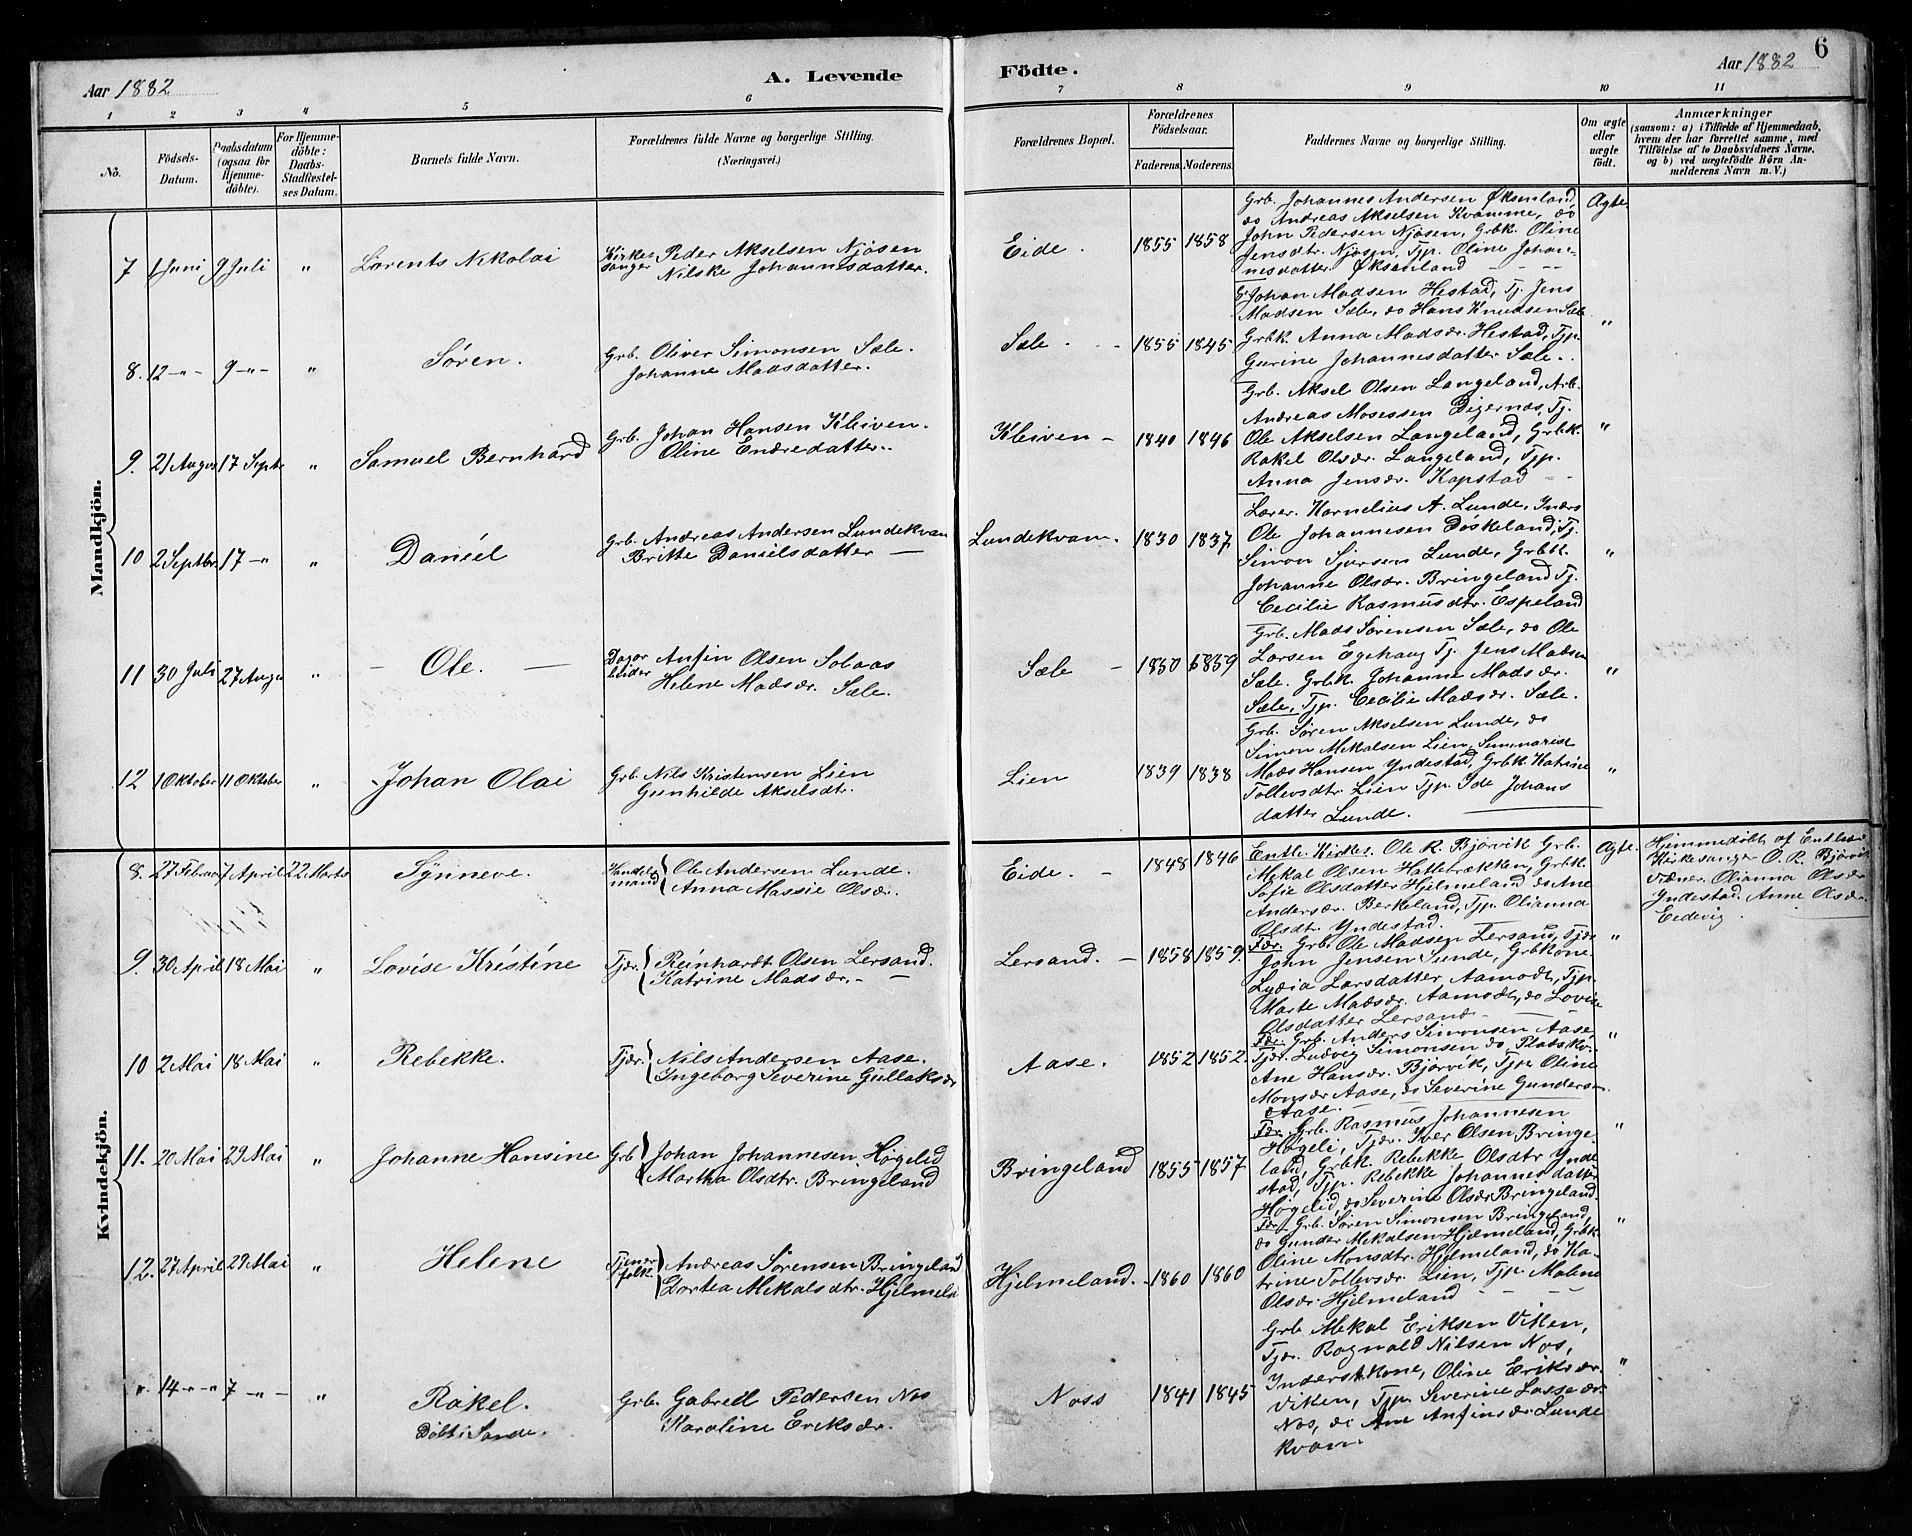 Aar 1882
A. Levende
Födte.
Aar 1882
6
1
2
3
4
5
6
7
8
9
10
11
No.
Födsels-
Datum.
Daabsdatum
(ogsaa for
Hjemme-
döbte).
For Hjemme-
döbte:
Daabs-
Stadfæstel-
ses Datum.
Barnets fulde Navn.
Forældrenes fulde Navne og borgerlige Stilling.
(Næringsvei.)
Forældrenes Bopæl.
Forældrenes
Födselsaar.
Faderens.
Moderens.
Faddernes Navne og borgerlige Stilling.
Om ægte
eller
uægte
födt.
Anmærkninger
(saasom: a) i Tilfælde af Hjemmedaab,
hvem der har forrettet samme, med
Tilföielse af to Daabsvidners Navne,
og b) ved uægtefödte Börn An-
melderens Navn m. V.)
Mandkjön.
7
1 Juni
9 Juli
"
Lorents Nikolai
Kirke-
sanger
Peder Akselsen Njøsen
Nilske Johannesdatter.
Eide.
1855
1858
Grb. Johannes Andersen Øksenland,
do Andreas Akselsen Kvamme, do
John Pedersen Njøsen, Grbk. Oline
Jensdtr. Njøsen, Tjp. Oline Johan-
nesdatter Øksenland
Ægte
8.
12 -"-
9 -"-
"
Søren.
Grb. Oliver Simonsen Sæle.
Johanne Madsdatter.
Sæle.
1855
1845
Johan Madsen Hestad, Tj. Jens
Madsen Sæle, do Hans Knudsen Sæle
Grbk. Anna Madsdr. Hestad, Tjp.
Gurine Johannesdatter Sæle.
"
9.
21 August
17 Septr
"
Samuel Bernhard
Grb. Johan Hansen Kleiven.
Oline Endredatter.
Kleiven
1840
1846
Grb. Aksel Olsen Langeland, Arb.
Andreas Mosessen Digernæs, Tj.
Ole Akselsen Langeland, Grbk.
Rakel Olsdr. Langeland, Tjp.
Anna Jensdr. Kapstad
"
10
2 Septbr
17 -"
"
Daniel
Grb. Andreas Andersen Lundekvam
Britte Danielsdatter
Lundekvam.
1830
1837
Lærer. Kornelius A. Lunde, Inders
Ole Johannesen Døskeland, Tj.
Simon Sjursen Lunde, Grbk.
Johanne Olsdr. Bringeland Tj.
Cecilie Rasmusdtr. Espeland
"
11
30 Juli
27 Augu
"
Ole.
Dagar
beider
Anfin Olsen Solaas
Helene Madsdr. Sæle.
Sæle
1850
1859
Grb. Mads Sørensen Sæle, do Ole
Larsen Egehaug Tj. Jens Madsen
Sæle. Grbk. Johanne Madsdr.
Sæle, Tjp. Cecilie Madsdr. Sæle.
"
12
1 Oktober
11 Oktober
"
Johan Olai
Grb. Nils Kristensen Lien
Gunhilde Akselsdtr.
Lien
1839
1838
Grb. Søren Akselsen Lunde, do
Simen Mekalsen Lien, Seminarist
Mads Hansen Yndestad, Grbk Katrine
Tollevsdtr Lien Tjp. Ide Johans
datter Lunde.
"
Kvindekjön.
8.
27 Februar
7 April
22. Marts
Synneve.
Handels
mand
Ole Andersen Lunde.
Anna Massie Olsdr.
Eide.
1848
1846
Entl. Kirkes. Ole R. Bjørvik Grb.
Mekal Olsen Hattebrækken, Grbk.
Sofie Olsdatter Hjelmeland do Ane
Andersdr. Berkeland, Tjp. Olianna
Olsdtr. Yndestad.
Ægte.
Hjemmedøbt af Entl.
Kirkesanger O. R. Bjørvik
Vidner. Olianna Olsdr.
Yndestad. Anne Olsdr.
Eidevig.
9.
30 April
18 Mai
"
Lovise Kristine
Tjdr.
Reinhardt Olsen Lersand.
Katrine Madsdr.
Lersand.
1858
1859.
Fdr. Grb. Ole Madsen Lersand, Tjdr
John Jensen Sunde, Grbkone
Lydia Larsdatter Aamodt, Tjp.
Marte Madsdr. Aamodt, do Lovise
Olsdatter Lersand
"
10
2 Mai
18 Mai
"
Rebekke.
Tjdr.
Nils Andersen Aase.
Ingeborg Severine Gullaksdr
Aase.
1852
1852.
Fdr. Grb. Anders Simonsen Aase
Tjdr. Ludvig Simonsen do, Pladsko-
Ane Hansdr. Bjørvik, Tjp Oline
Monsdr Aase, do Severine Gunders-
dr Aase.
"
11.
20 Mai
29 Mai
"
Johanne Hansine
Grb
Johan Johannesen Høgelid
Martha Olsdtr. Bringeland
Bringeland
1855
1857
Fdr. Grb. Rasmus Johannesen
Høgeli, Tjdr. Iver Olsen Bringe-
land, Grbk. Rebekke Olsdtr Ynde
stad, Tjp. Rebekke Johannesdatter
Høgelid, do Severine Olsdr Bringeland.
"
12.
27 April
29 Mai
"
Helene
Tjener
folk.
Andreas Sørensen Bringeland
Dortea Mekalsdtr. Hjelmeld
Hjelmeland.
1860
1860
Fdr. Grb. Søren Simonsen Bringeland,
do Gunder Mekalsen Hjelmeland, Grbk
Oline Monsdtr. Hjelmeland, do Ka-
trine Tollevsdr. Lien, Tjp. Malene
Olsdr. Hjelmeland
"
"
14 -"-
7 -"-
"
Rakel.
Døbt i Sande.
Grb. Gabriell Pedersen Nos
Karoline Eriksdr.
Noss
1841
1845
Grb. Mekal Eriksen Viken,
Tjdr. Ragnald Nilsen Nos,
Inderstkone, Oline Eriksdr.
Viken, Tjp. Severine Lassedr.
Nos, do Ane Anfinsdr. Lunde
kvam.
"